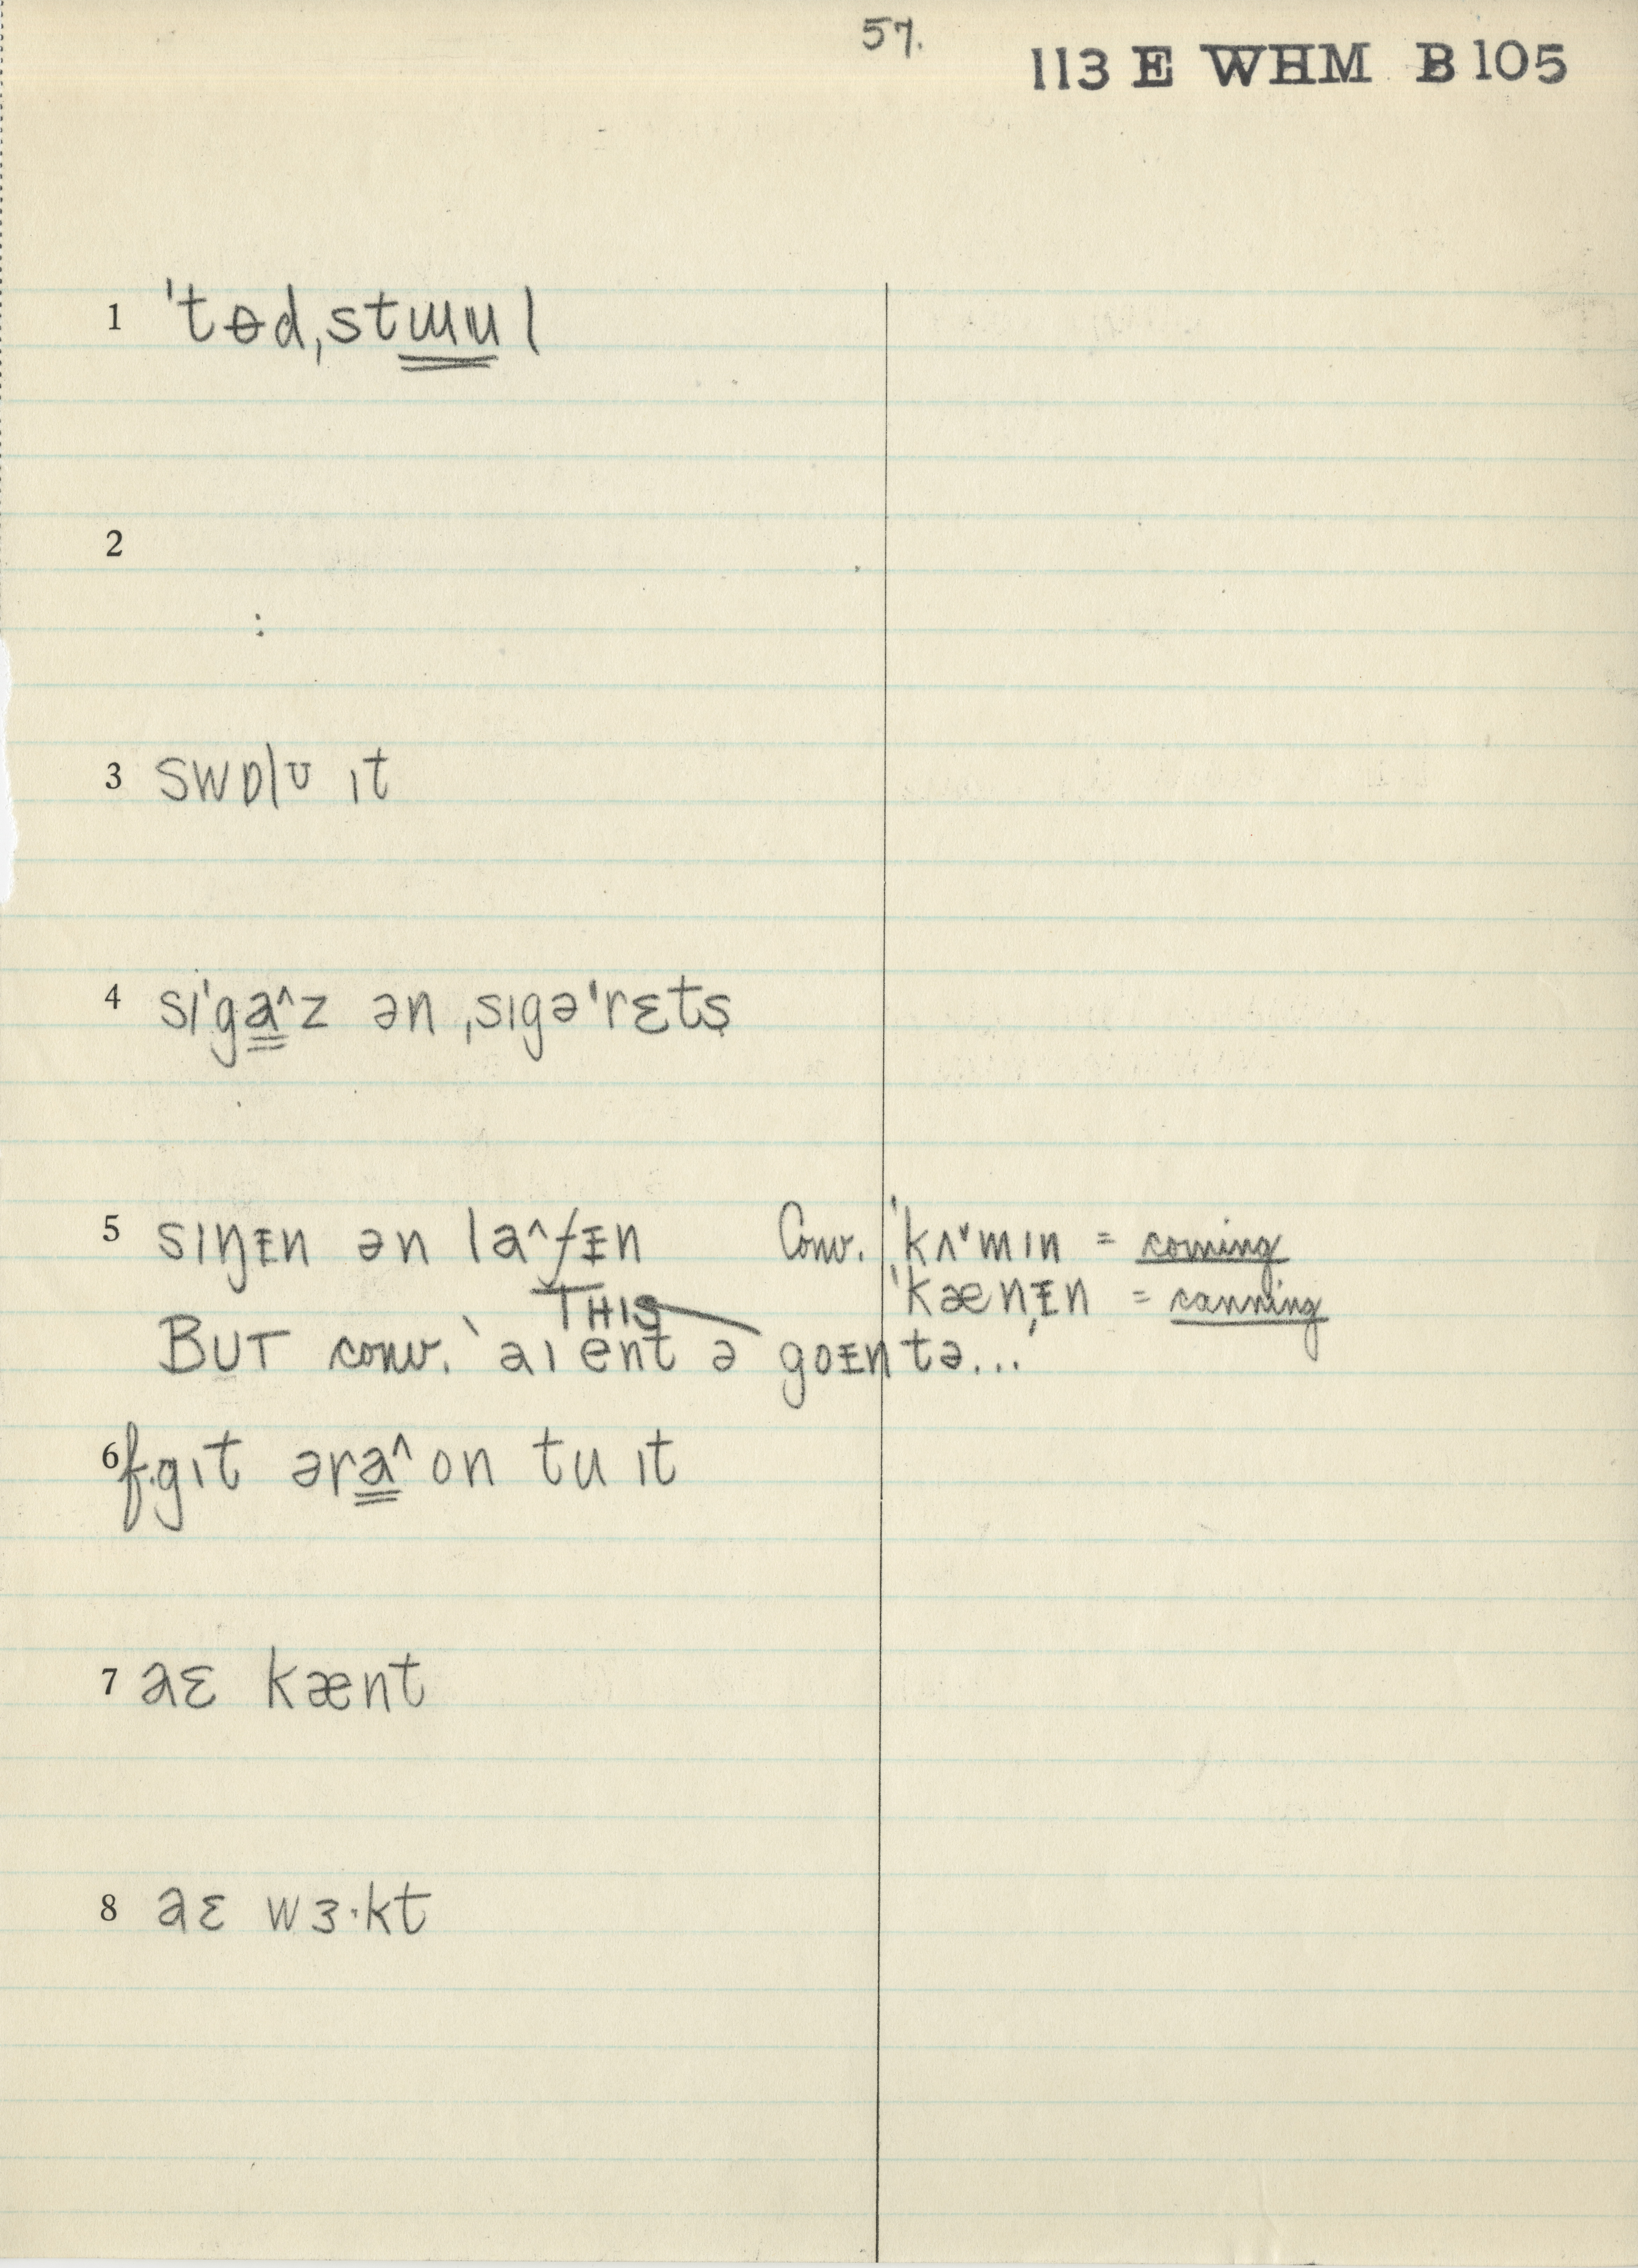 57.
113 E WHM B 105
1 ˈtɵdˌstɯɯl
2
3 swɒlʊ ɪt
4 sɪˈga^z ən ˌsɪgəˈrɛts
5 sɪŋᵻn ən la^fᵻn Conv. ˈkʌ˅mɪn = coming
ˈkænᵻn = canning
THIS
BUT conv. ˋaɪ ent ə goᵻn tə...ˊ
6 f. gɪt əra^on tu ɪt
7 aɛ kænt
8 aɛ wɜ·kt